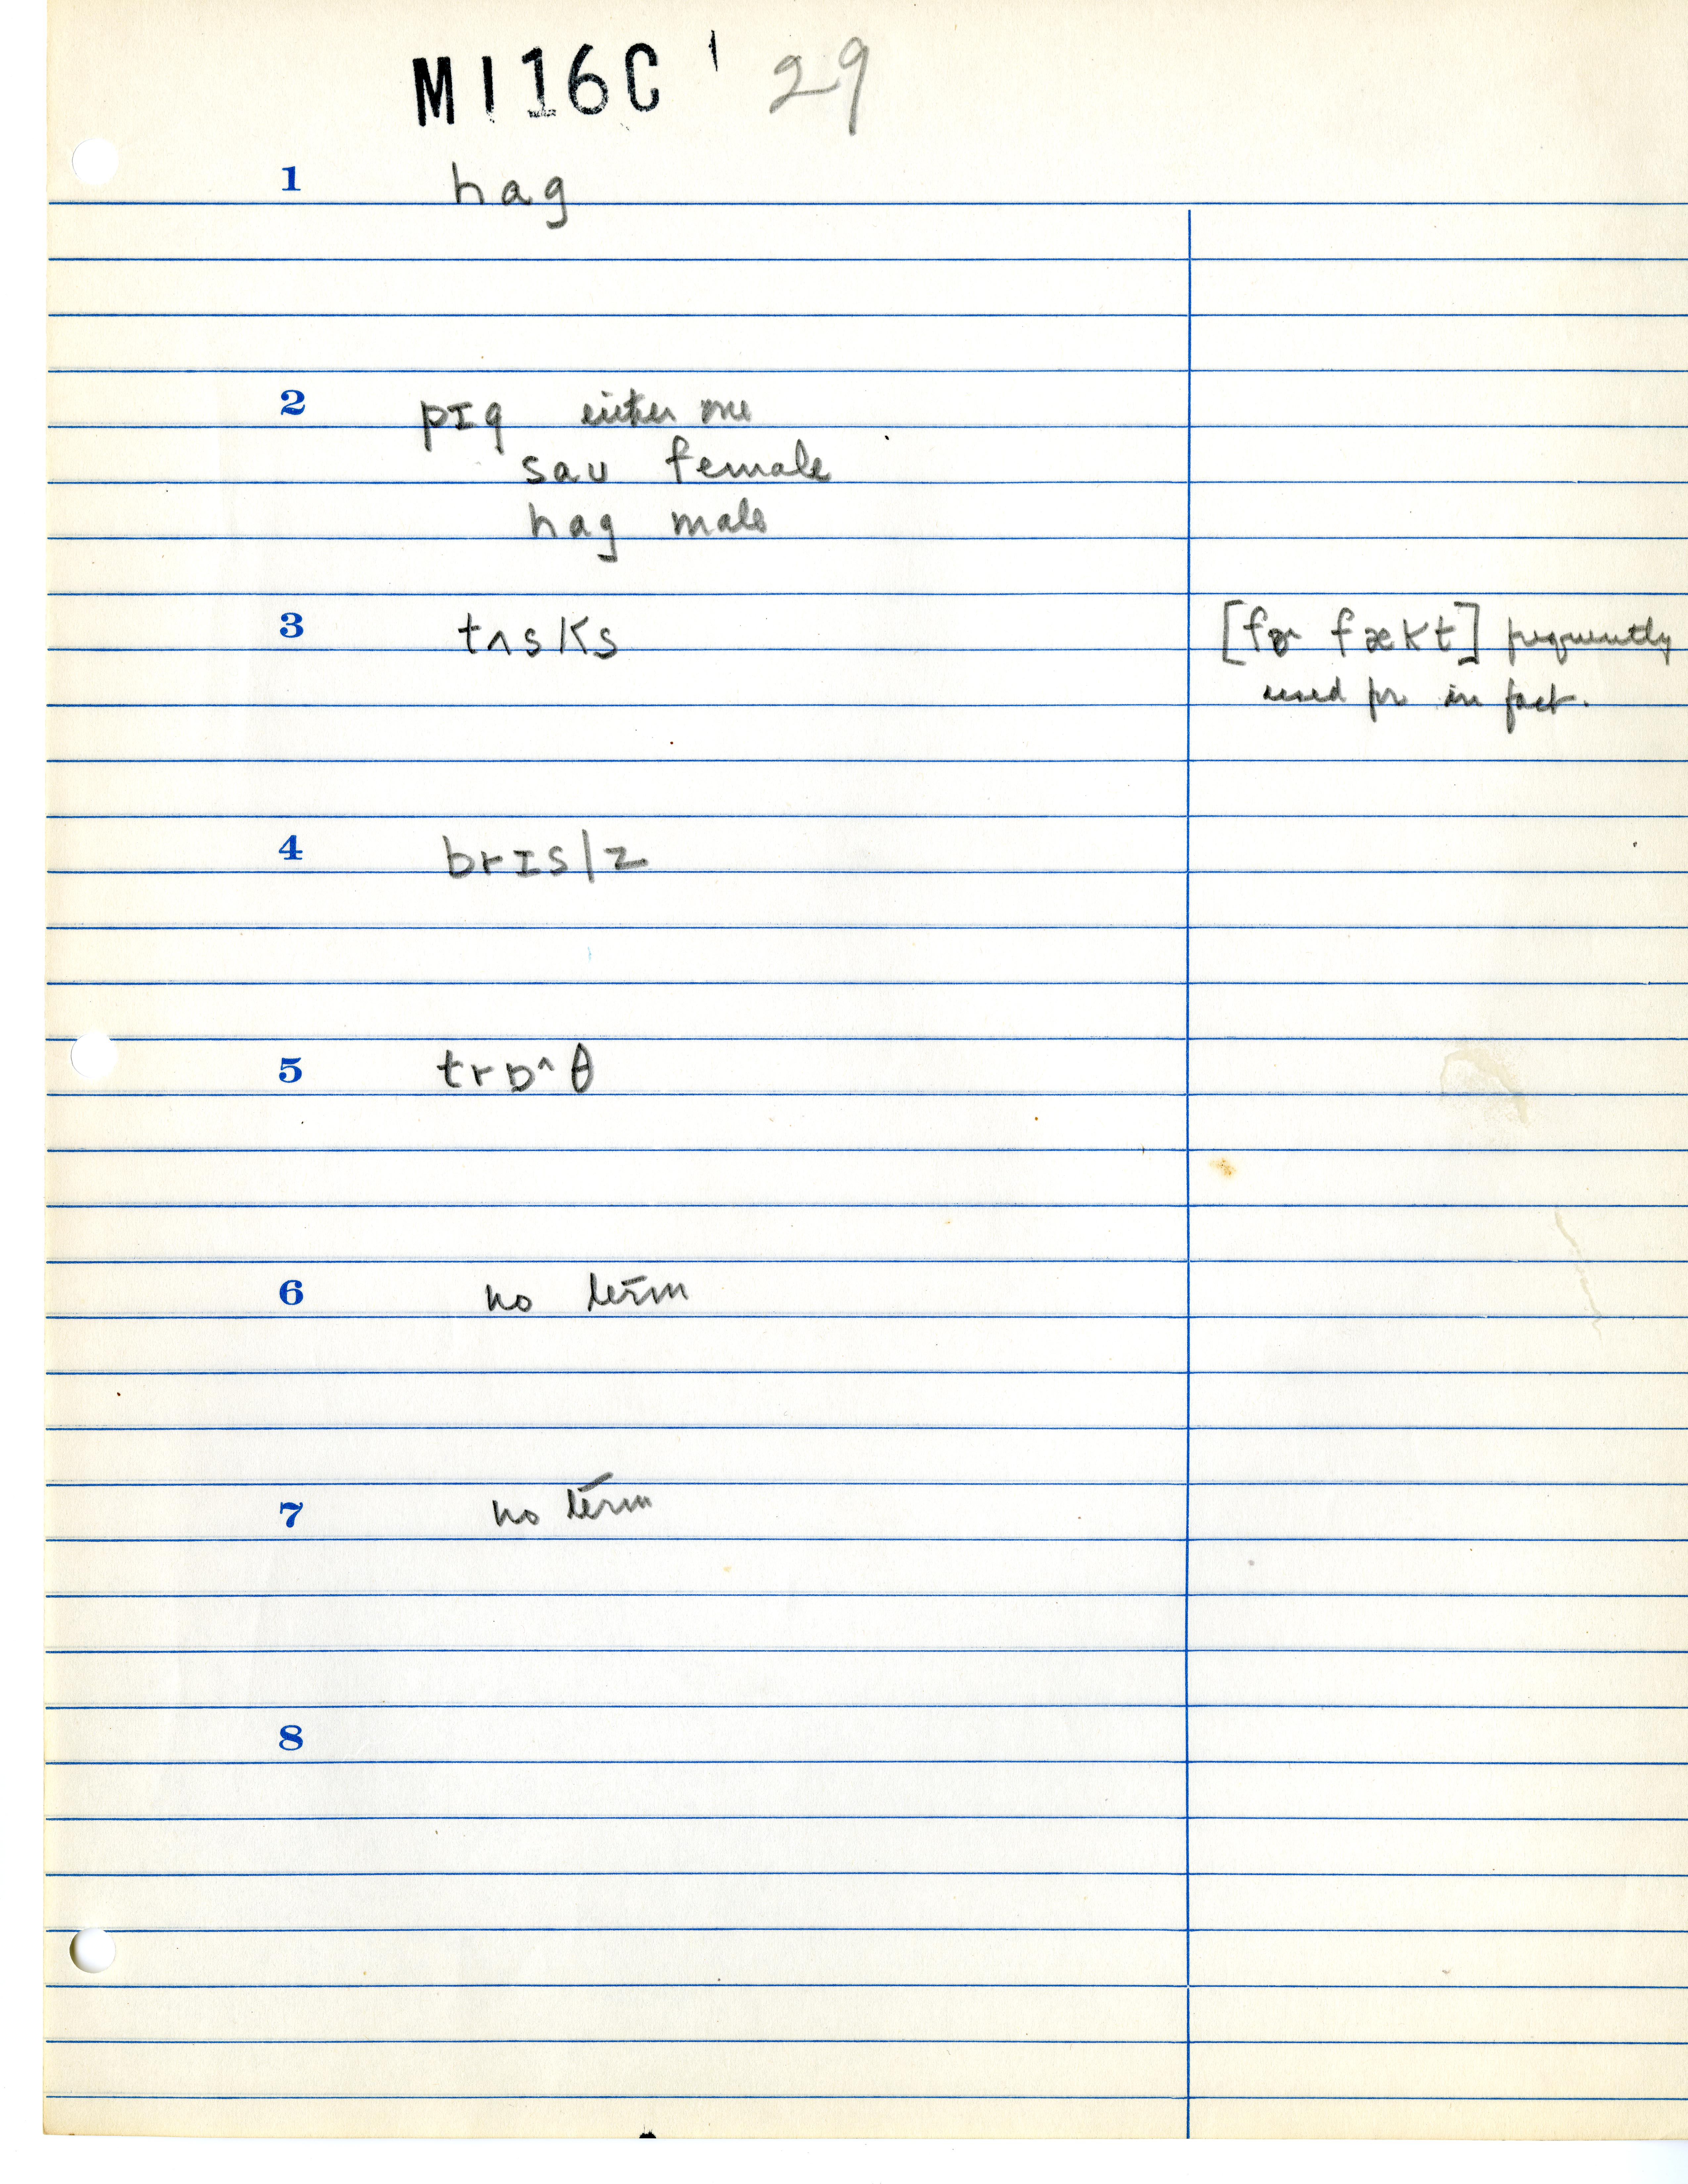 MI16C ' 29
1 hag
2 pɪg either one
sau female
hag male
3 tʌsks [fɚ fækt] frequently
used for in fact.
4 brɪs|z
5 trɒ^θ
6 no term
7 no term
8